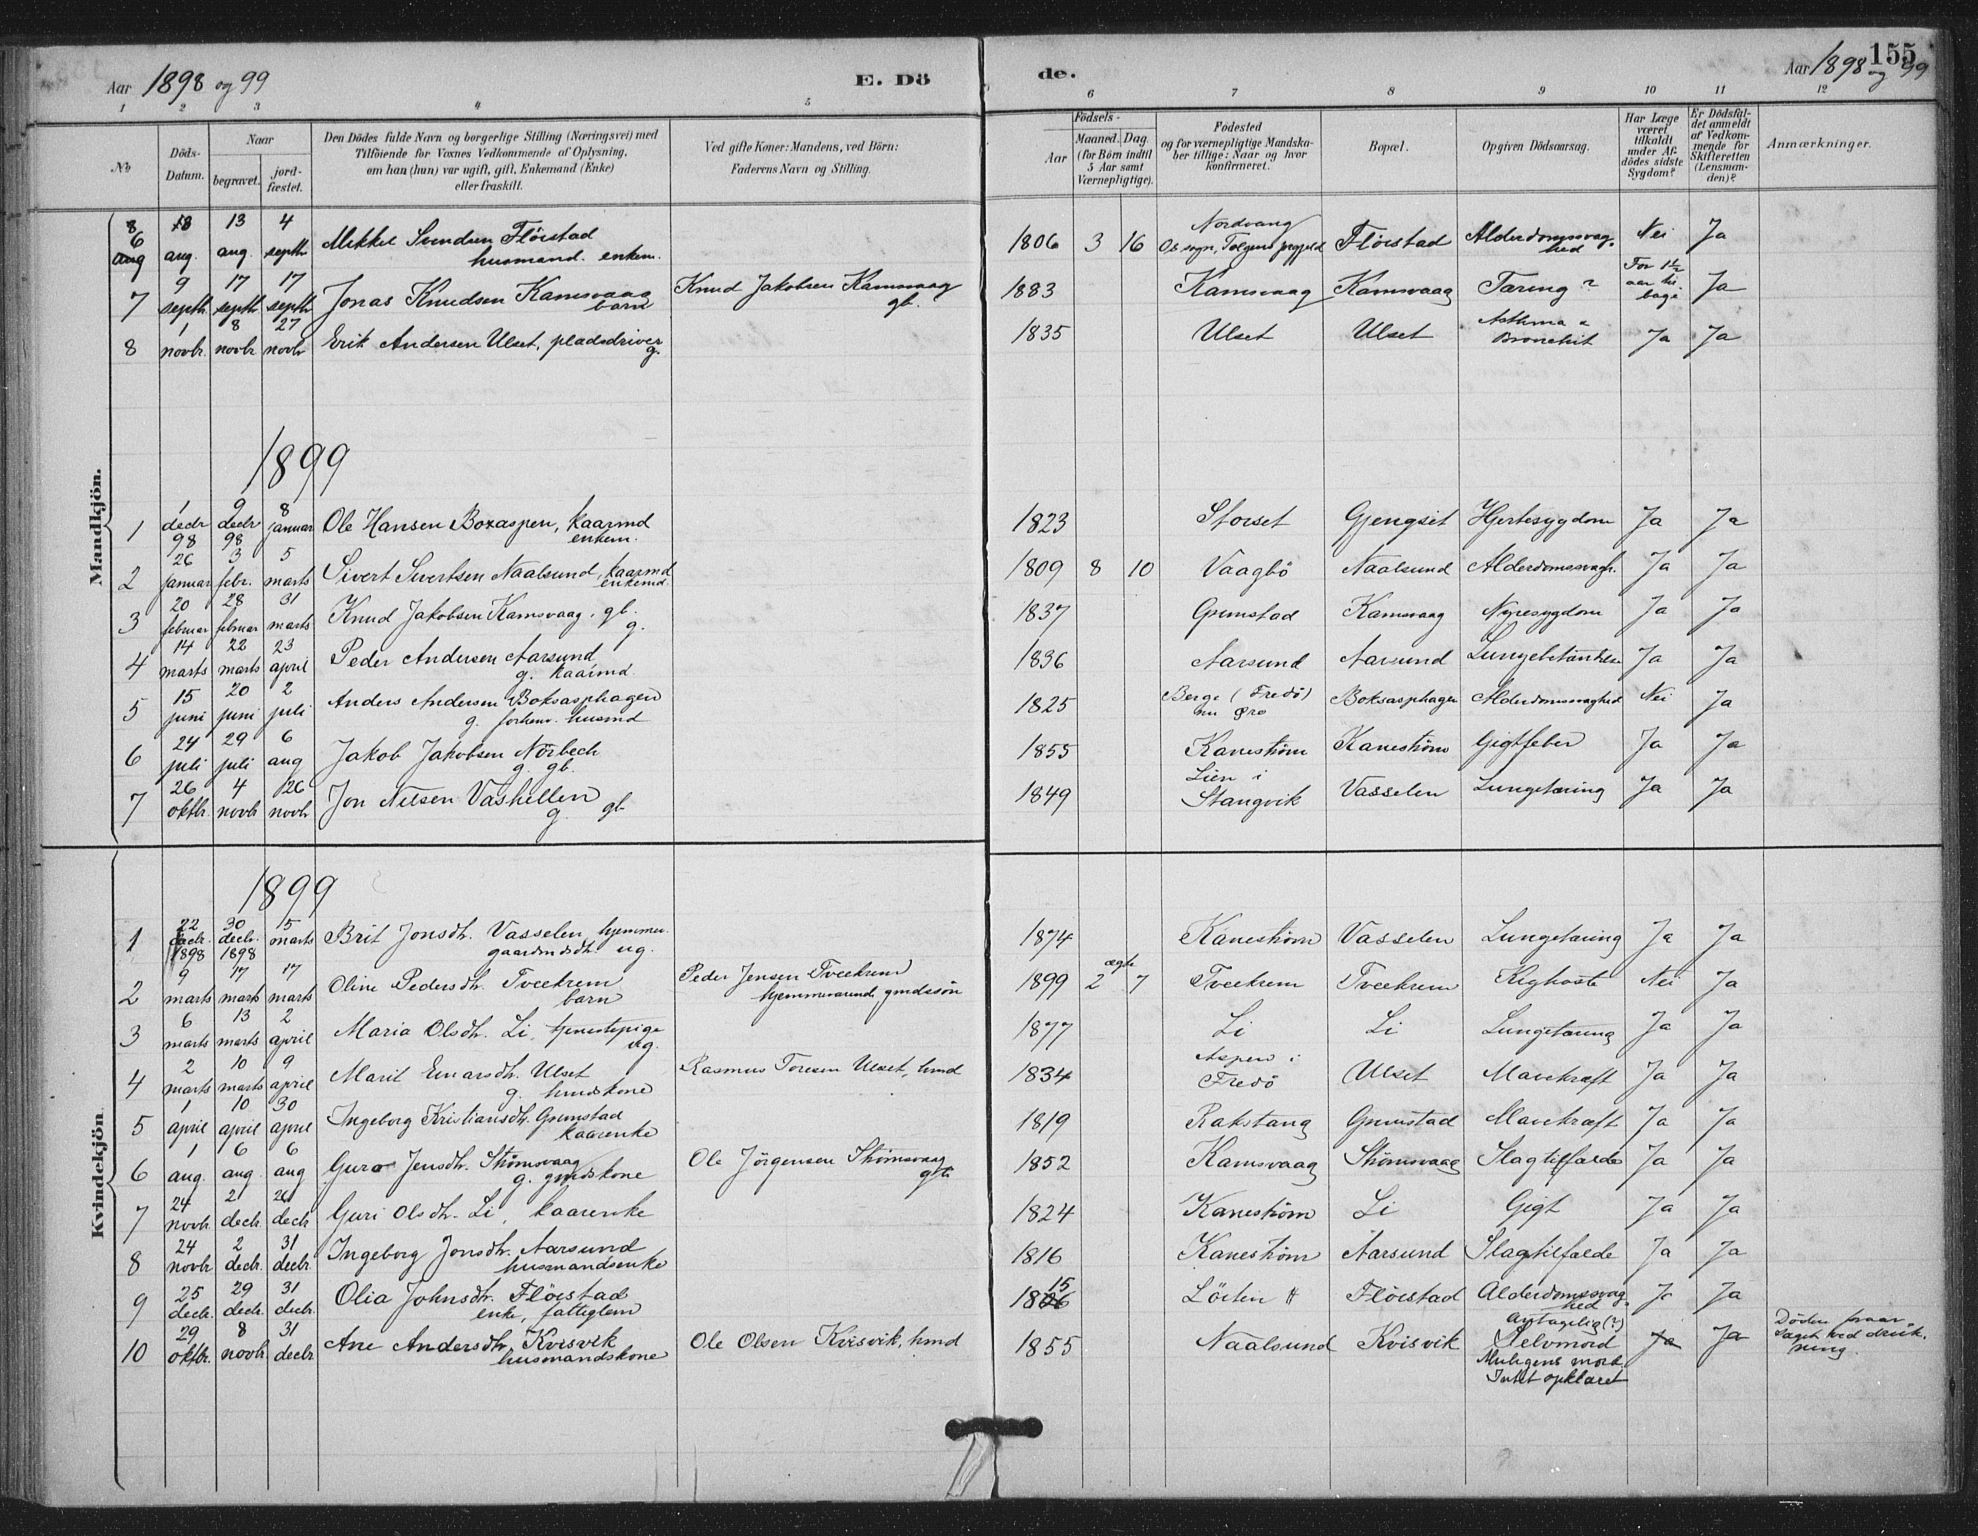 Aar 1898 og 99 E. Dö
de. Aar 1898 og 99 155
1 2 3 4 5 6 7 8 9 10 11 12
No Döds-Datum. Naar begravet. jord-fæstet. Den Dödes fulde Navn og borgerlige Stilling (Næringsvei) med Tilföiende for Voxnes Vedkommende af Oplysning, om han (hun) var ugift, gift, Enkemand (Enke) eller fraskilt. Ved gifte Koner: Mandens, ved Börn: Faderens Navn og Stilling.
Födsels- Aar Maaned. Dag. (for Börn indtil 5 Aar samt Værnepligtige). Födested og for værnepligtige Mandska-ber tillige: Naar og hvor konfirmeret. Bopæl. Opgiven Dödsaarsag. Har Læge været tilkaldt under Af-dödes sidste Sygdom? Er Dödsfal-det anmeldt af Vedkom-mende for Skifteretten (Lensman-den)? Anmærkninger.
Mandkjön.
6 aug. 13 aug. 4 septb Mikkel Svendsen Flöistad husmand. enkem. 1806 3 16 Nordvang Os sogn, Tolgens prgjeld Flöistad Alderdomssvag-hed Nei Ja
7 9 septb. 17 septb 17 septb Jonas Knudsen Kamsvaag barn Knud Jakobsen Kamsvaag gb. 1883 Kamsvaag Kamsvaag Tæring ? For 1½ aar til-bage Ja
8 1 novbr. 8 novbr 27 novbr Erik Andersen Ulset, pladsdriver g. 1835 Ulset Ulset Asthma & Bronchit Ja Ja
1899
1 1 decbr 98 9 decbr 98 8 januar Ole Hansen Boxaspen, kaarmd enkem. 1823 Storset Gjengset Hjertesygdom Ja Ja
2 26 januar 3 febr. 5 marts Sivert Sivertsen Naalsund, kaarmd enkemd. 1809 8 10 Vaagbö Naalsund Alderdomssvagh. Ja Ja
3 20 februar 28 februar 31 marts Knud Jakobsen Kamsvaag, gb. g. 1837 Grimstad Kamsvaag Nyresygdom Ja Ja
4 14 marts 22 marts 23 april Peder Andersen Aarsund g. kaarmd. 1836 Aarsund Aarsund Lungebetændelse Ja Ja
5 15 juni 20 juni 2 juli Anders Andersen Boksasphagen g. forhenv. husmd 1825 Berge (Fredö) nu Øre Boksasphagen Alderdomssvaghed Nei Ja
6 24 juli 29 juli 6 aug Jakob Jakobsen Nörbech g. gb. 1855 Kanestrøm Kanestrøm Gigtfeber Ja Ja
7 26 oktbr. 4 novbr 26 novbr Jon Nilsen Vashellen g. gb 1849 Lien i Stangvik Vasselen Lungetæring Ja Ja
Kvindekjön
1899
1 22 decbr. 1898 30 decbr. 1898 5 marts Brit Jonsdtr. Vasselen, hjemmev. gaardmdsdtr. ug. 1874 Kanestrøm Vasselen Lungetæring Ja Ja
2 9 marts 17 marts 17 marts Oline Pedersdtr. Tveekrem barn Peder Jensen Tveekrem hjemmeværende gmdssön 1899 ægte 2 7 Tveekrem Tveekrem Kighoste Nei Ja
3 6 marts 13 marts 2 april Maria Olsdtr. Li, tjenestepige ug. 1877 Li Li Lungetæring Ja Ja
4 2 marts 10 marts 9 april Marit Einarsdtr. Ulset g. hmdskone Rasmus Toresen Ulset, hmd 1834 Aspen i Fredö Ulset Mavekræft Ja Ja
5 1 april 10 april 30 april Ingeborg Kristiansdtr. Grimstad kaarenke 1819 Rakstang Grimstad Mavekræft Ja Ja
6 1 aug. 6 aug. 6 aug Guro Jensdtr. Strømsvaag g. gmdskone Ole Jörgensen Strømsvaag gb. 1852 Kamsvaag Strømsvaag Slagtilfælde Ja Ja
7 24 novbr. 2 decbr. 26 decbr Guri Olsdtr. Li, kaarenke 1824 Kanestrøm Li Gigt Ja Ja
8 24 novbr 2 decbr. 31 decbr. Ingeborg Jonsdtr. Aarsund husmandsenke 1816 Kanestrøm Aarsund Slagtilfælde Ja Ja
9 25 decbr. 29 decbr. 31 decbr. Olia Johnsdtr. Flöistad enke, fattiglem 1815 Löiten Flöistad Alderdomssvag-hed Ja Ja
10 29 oktbr. 8 novbr 31 decbr Ane Andersdtr. Kvisvik husmandskone Ole Olsen Kvisvik, hmd 1855 Naalsund Kvisvik Antagelig (?) Selvmord Muligens mord. Intet opklaret Ja Ja Döden foraar-saget ved druk-ning.